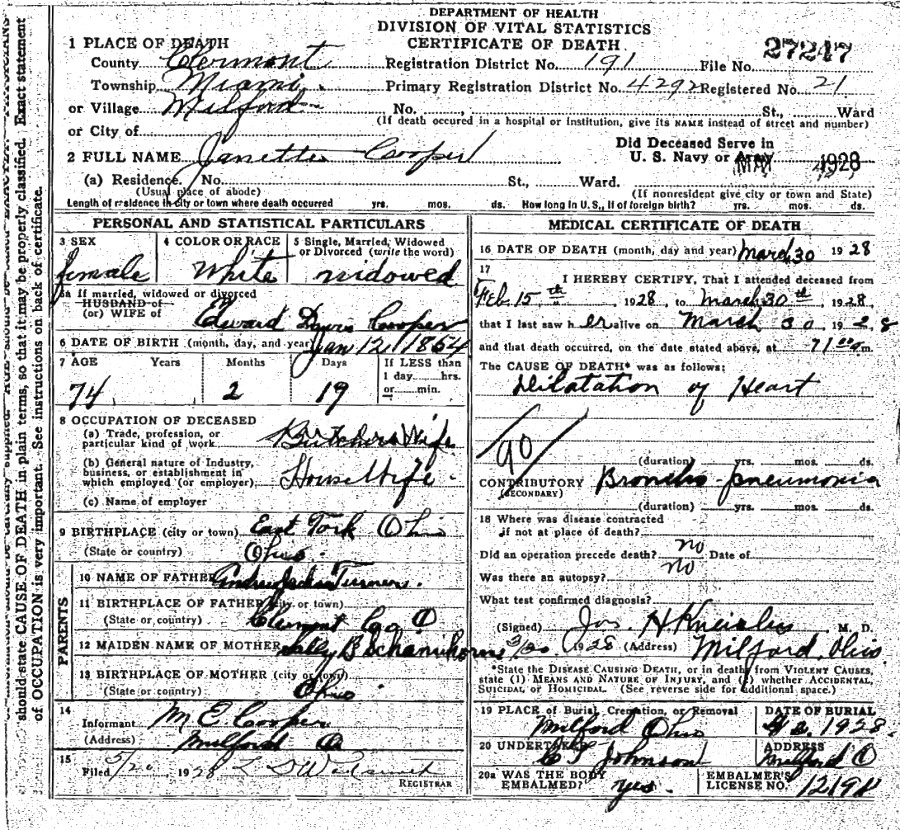 DEPARTMENT OF HEALTH
DIVISION OF VITAL STATISTICS
CERTIFICATE OF DEATH
1 PLACE OF DEATH
County Clermont Registration District No. 191 File No. 27247
Township Miami Primary Registration District No. 4292 Registered No. 21
or Village Milford No. St., Ward
(If death occured in a hospital or Institution, give its NAME instead of street and number)
or City of
2 FULL NAME Janette Cooper
Did Deceased Serve in
U. S. Navy or Army MAY 1928
(a) Residence. No. St., Ward.
(Usual place of abode) (If nonresident give city or town and State)
Length of residence in city or town where death occurred yrs. mos. ds. How long in U. S., if of foreign birth? yrs. mos. ds.
PERSONAL AND STATISTICAL PARTICULARS
3 SEX 4 COLOR OR RACE 5 Single, Married, Widowed
or Divorced (write the word)
female White widowed
5a If married, widowed or divorced
HUSBAND of
(or) WIFE of Edward Davis Cooper
6 DATE OF BIRTH (month, day, and year) Jan 12, 1854
7 AGE Years Months Days If LESS than
1 day hrs.
or min.
74 2 19
8 OCCUPATION OF DECEASED
(a) Trade, profession, or
particular kind of work Butchers Wife
(b) General nature of Industry,
business, or establishment in
which employed (or employer) House Wife
(c) Name of employer
9 BIRTHPLACE (city or town) East Fork Ohio
(State or country) Ohio
PARENTS
10 NAME OF FATHER Turner
11 BIRTHPLACE OF FATHER (city or town)
(State or country) Clermont Co O
12 MAIDEN NAME OF MOTHER Sally B
13 BIRTHPLACE OF MOTHER (city or town)
(State or country) Ohio
14
Informant M E Cooper
(Address) Milford O
15
Filed 5/20, 1928
REGISTRAR
MEDICAL CERTIFICATE OF DEATH
16 DATE OF DEATH (month, day and year) March 30 1928
17
I HEREBY CERTIFY, That I attended deceased from
Feb. 15th, 1928, to March 30th, 1928,
that I last saw her alive on March 30, 1928
and that death occurred, on the date stated above, at m.
The CAUSE OF DEATH* was as follows:
Dilatation of Heart
90
(duration) yrs. mos. ds.
CONTRIBUTORY Broncho-pneumonia
(SECONDARY)
(duration) yrs. mos. ds.
18 Where was disease contracted
if not at place of death?
Did an operation precede death? no Date of
Was there an autopsy? no
What test confirmed diagnosis?
(Signed) Jos. H M. D.
1928 (Address) Milford Ohio
*State the DISEASE CAUSING DEATH, or in deaths from VIOLENT CAUSES,
state (1) MEANS AND NATURE OF INJURY, and (2) whether ACCIDENTAL,
SUICIDAL or HOMICIDAL. (See reverse side for additional space.)
19 PLACE of Burial, Cremation, or Removal DATE OF BURIAL
Milford Ohio 1928
20 UNDERTAKER ADDRESS
Johnson Milford O
20a WAS THE BODY
EMBALMED? yes. EMBALMER'S
LICENSE NO. 1219
should state CAUSE OF DEATH in plain terms, so that it may be properly classified. Exact statement
of OCCUPATION is very important. See instructions on back of certificate.